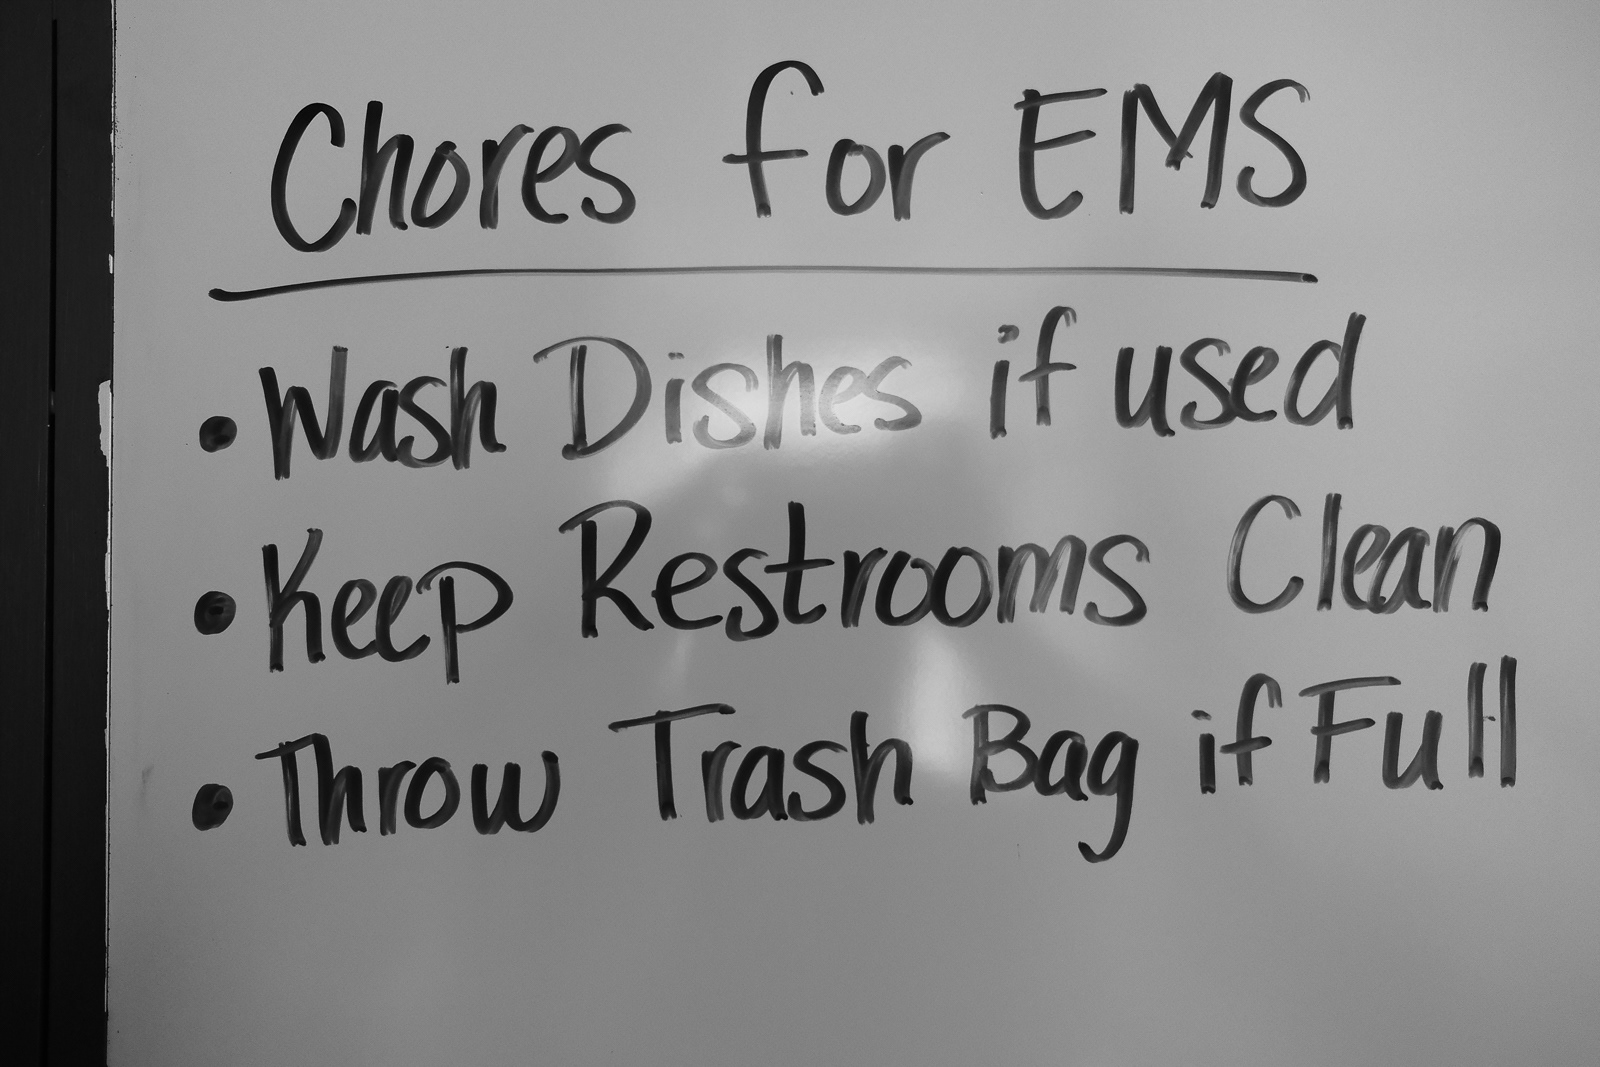 Chores for EMS
• Wash Dishes if used
• Keep Restrooms Clean
• Throw Trash Bag if Full